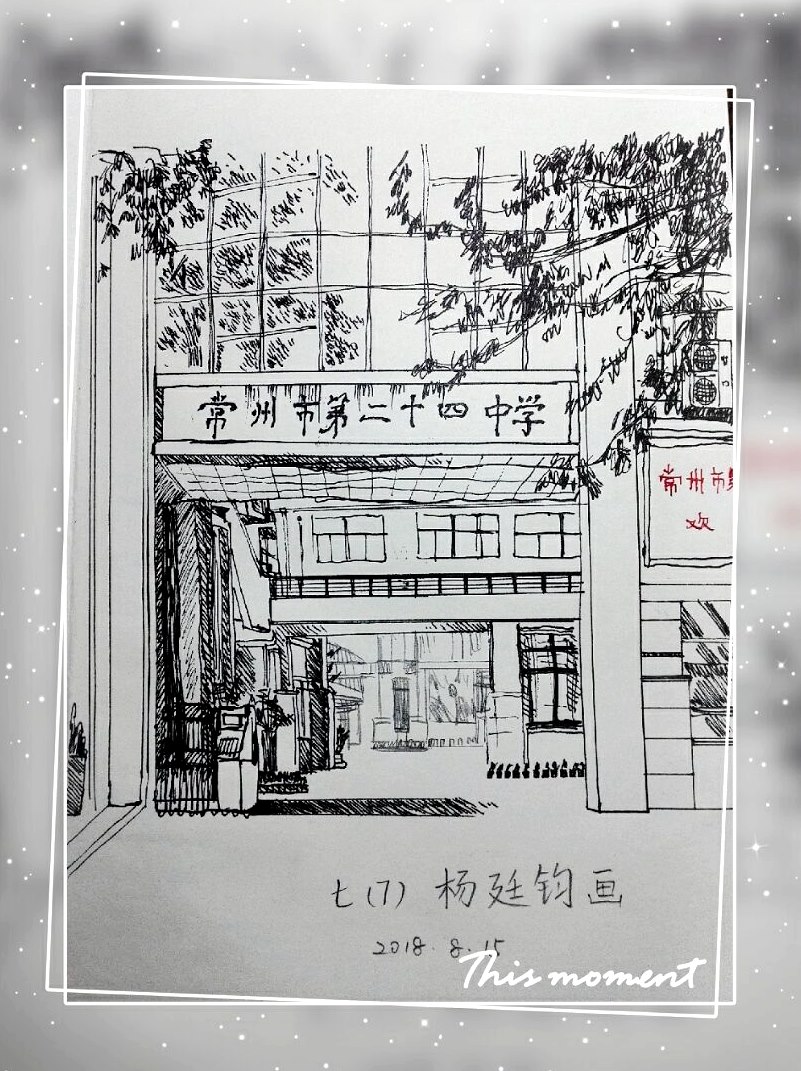 常州市第二十四中学
常州市
欢
七(7) 杨廷钧画
2018.8.15
This moment